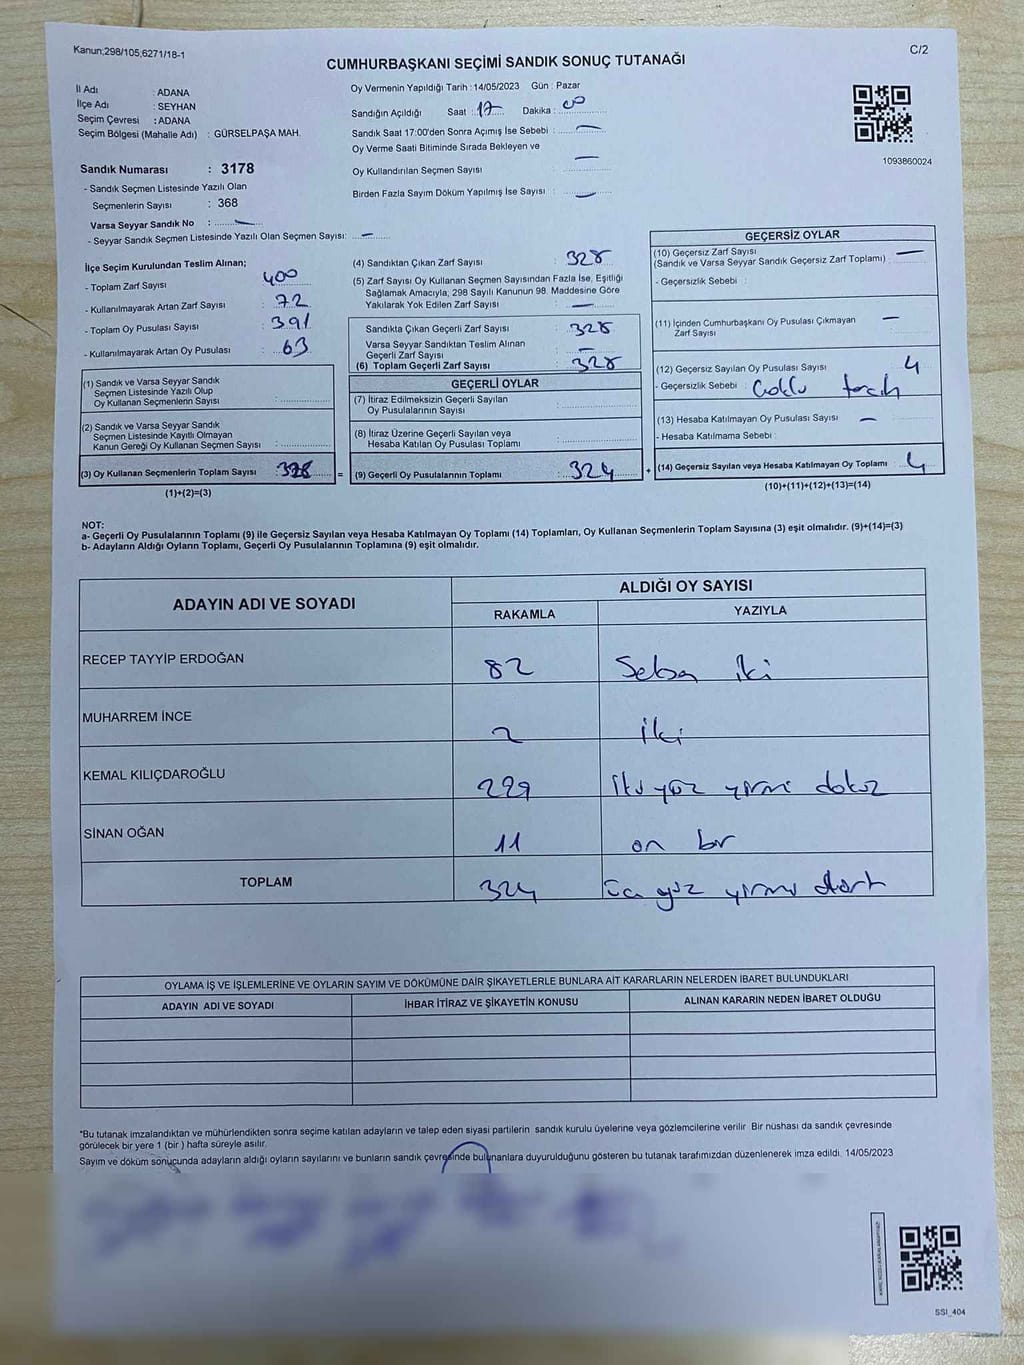 Kanun;298/105;6271/18-1
C/2
CUMHURBAŞKANI SEÇİMİ SANDIK SONUÇ TUTANAĞI
İl Adı : ADANA
İlçe Adı : SEYHAN
Seçim Çevresi : ADANA
Seçim Bölgesi (Mahalle Adı) : GÜRSELPAŞA MAH.
Oy Vermenin Yapıldığı Tarih : 14/05/2023 Gün : Pazar
Sandığın Açıldığı Saat : 17 Dakika : 00
Sandık Saat 17:00'den Sonra Açımış İse Sebebi : —
Oy Verme Saati Bitiminde Sırada Bekleyen ve
Oy Kullandırılan Seçmen Sayısı : —
Birden Fazla Sayım Döküm Yapılmış İse Sayısı : —
1093860024
Sandık Numarası : 3178
- Sandık Seçmen Listesinde Yazılı Olan
Seçmenlerin Sayısı : 368
Varsa Seyyar Sandık No : —
- Seyyar Sandık Seçmen Listesinde Yazılı Olan Seçmen Sayısı: —
İlçe Seçim Kurulundan Teslim Alınan;
- Toplam Zarf Sayısı : 400
- Kullanılmayarak Artan Zarf Sayısı : 72
- Toplam Oy Pusulası Sayısı : 391
- Kullanılmayarak Artan Oy Pusulası : 63
(1) Sandık ve Varsa Seyyar Sandık
Seçmen Listesinde Yazılı Olup
Oy Kullanan Seçmenlerin Sayısı :
(2) Sandık ve Varsa Seyyar Sandık
Seçmen Listesinde Kayıtlı Olmayan
Kanun Gereği Oy Kullanan Seçmen Sayısı :
(3) Oy Kullanan Seçmenlerin Toplam Sayısı : 328 =
(1)+(2)=(3)
(4) Sandıktan Çıkan Zarf Sayısı : 328
(5) Zarf Sayısı Oy Kullanan Seçmen Sayısından Fazla İse, Eşitliği
Sağlamak Amacıyla, 298 Sayılı Kanunun 98. Maddesine Göre
Yakılarak Yok Edilen Zarf Sayısı : —
Sandıkta Çıkan Geçerli Zarf Sayısı : 328
Varsa Seyyar Sandıktan Teslim Alınan
Geçerli Zarf Sayısı : —
(6) Toplam Geçerli Zarf Sayısı : 328
GEÇERLİ OYLAR
(7) İtiraz Edilmeksizin Geçerli Sayılan
Oy Pusulalarının Sayısı :
(8) İtiraz Üzerine Geçerli Sayılan veya
Hesaba Katılan Oy Pusulası Toplamı :
(9) Geçerli Oy Pusulalarının Toplamı : 324 +
GEÇERSİZ OYLAR
(10) Geçersiz Zarf Sayısı
(Sandık ve Varsa Seyyar Sandık Geçersiz Zarf Toplamı) : —
- Geçersizlik Sebebi :
(11) İçinden Cumhurbaşkanı Oy Pusulası Çıkmayan
Zarf Sayısı : —
(12) Geçersiz Sayılan Oy Pusulası Sayısı : 4
- Geçersizlik Sebebi : Çoklu tercih
(13) Hesaba Katılmayan Oy Pusulası Sayısı : —
- Hesaba Katılmama Sebebi :
(14) Geçersiz Sayılan veya Hesaba Katılmayan Oy Toplamı : 4
(10)+(11)+(12)+(13)=(14)
NOT:
a- Geçerli Oy Pusulalarının Toplamı (9) ile Geçersiz Sayılan veya Hesaba Katılmayan Oy Toplamı (14) Toplamları, Oy Kullanan Seçmenlerin Toplam Sayısına (3) eşit olmalıdır. (9)+(14)=(3)
b- Adayların Aldığı Oyların Toplamı, Geçerli Oy Pusulalarının Toplamına (9) eşit olmalıdır.
ADAYIN ADI VE SOYADI
ALDIĞI OY SAYISI
RAKAMLA YAZIYLA
RECEP TAYYİP ERDOĞAN 82 Seksen iki
MUHARREM İNCE 2 iki
KEMAL KILIÇDAROĞLU 229 iki yüz yirmi dokuz
SİNAN OĞAN 11 on bir
TOPLAM 324 üç yüz yirmi dört
OYLAMA İŞ VE İŞLEMLERİNE VE OYLARIN SAYIM VE DÖKÜMÜNE DAİR ŞİKAYETLERLE BUNLARA AİT KARARLARIN NELERDEN İBARET BULUNDUKLARI
ADAYIN ADI VE SOYADI İHBAR İTİRAZ VE ŞİKAYETİN KONUSU ALINAN KARARIN NEDEN İBARET OLDUĞU
*Bu tutanak imzalandıktan ve mühürlendikten sonra seçime katılan adayların ve talep eden siyasi partilerin sandık kurulu üyelerine veya gözlemcilerine verilir. Bir nüshası da sandık çevresinde
görülecek bir yere 1 (bir ) hafta süreyle asılır.
Sayım ve döküm sonucunda adayların aldığı oyların sayılarını ve bunların sandık çevresinde bulunanlara duyurulduğunu gösteren bu tutanak tarafımızdan düzenlenerek imza edildi. 14/05/2023
SSI_404